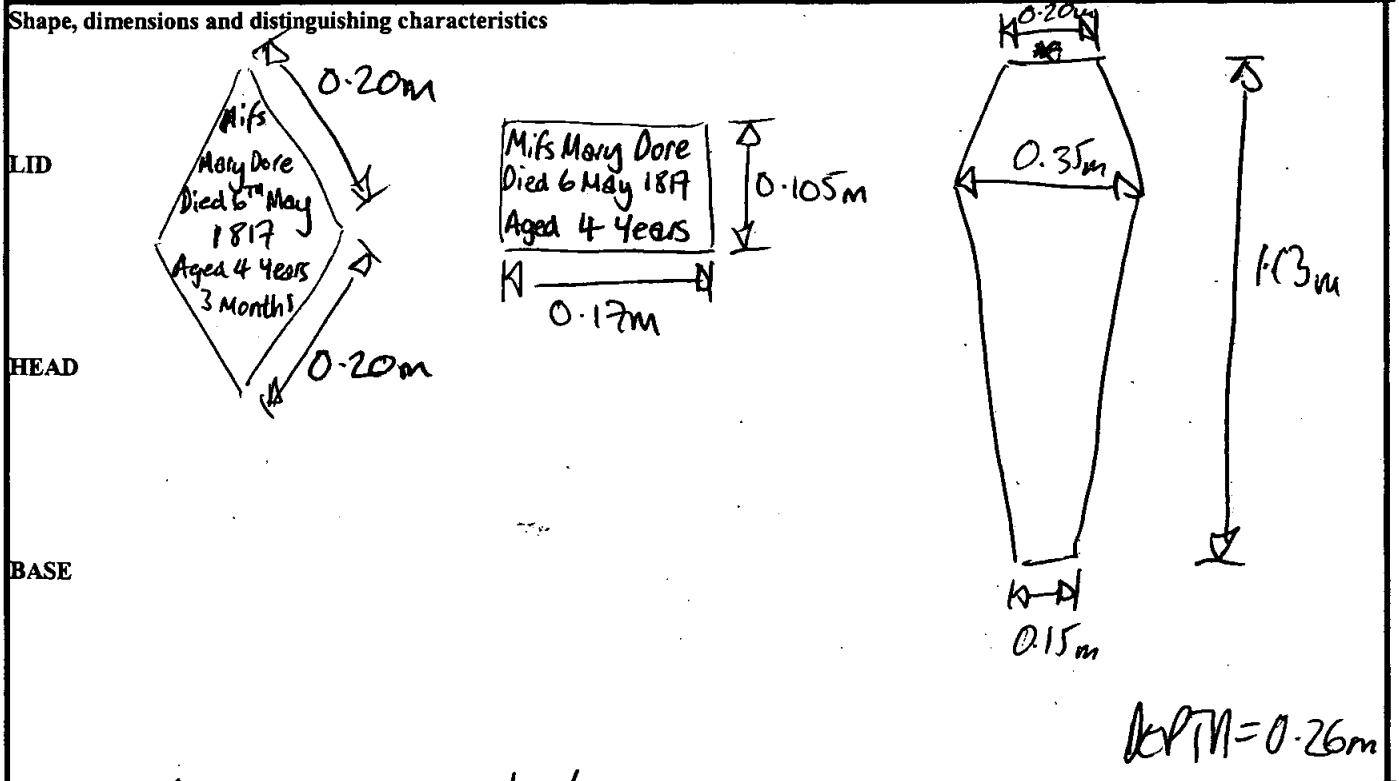 Shape, dimensions and distinguishing characteristics
0.20m
Mifs
Mary Dore
Died 6TH May
1817
Aged 4 Years
3 Months
0.20m
LID
Mifs Mary Dore
Died 6 May 1817
Aged 4 Years
0.105m
0.17m
0.20m
0.35m
1.13m
0.15m
HEAD
BASE
DEPTH = 0.26m